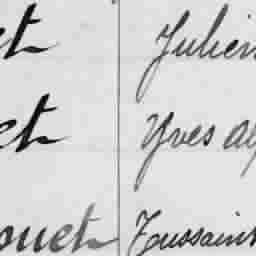 et Julien
et Yves Al
ouet Toussaint